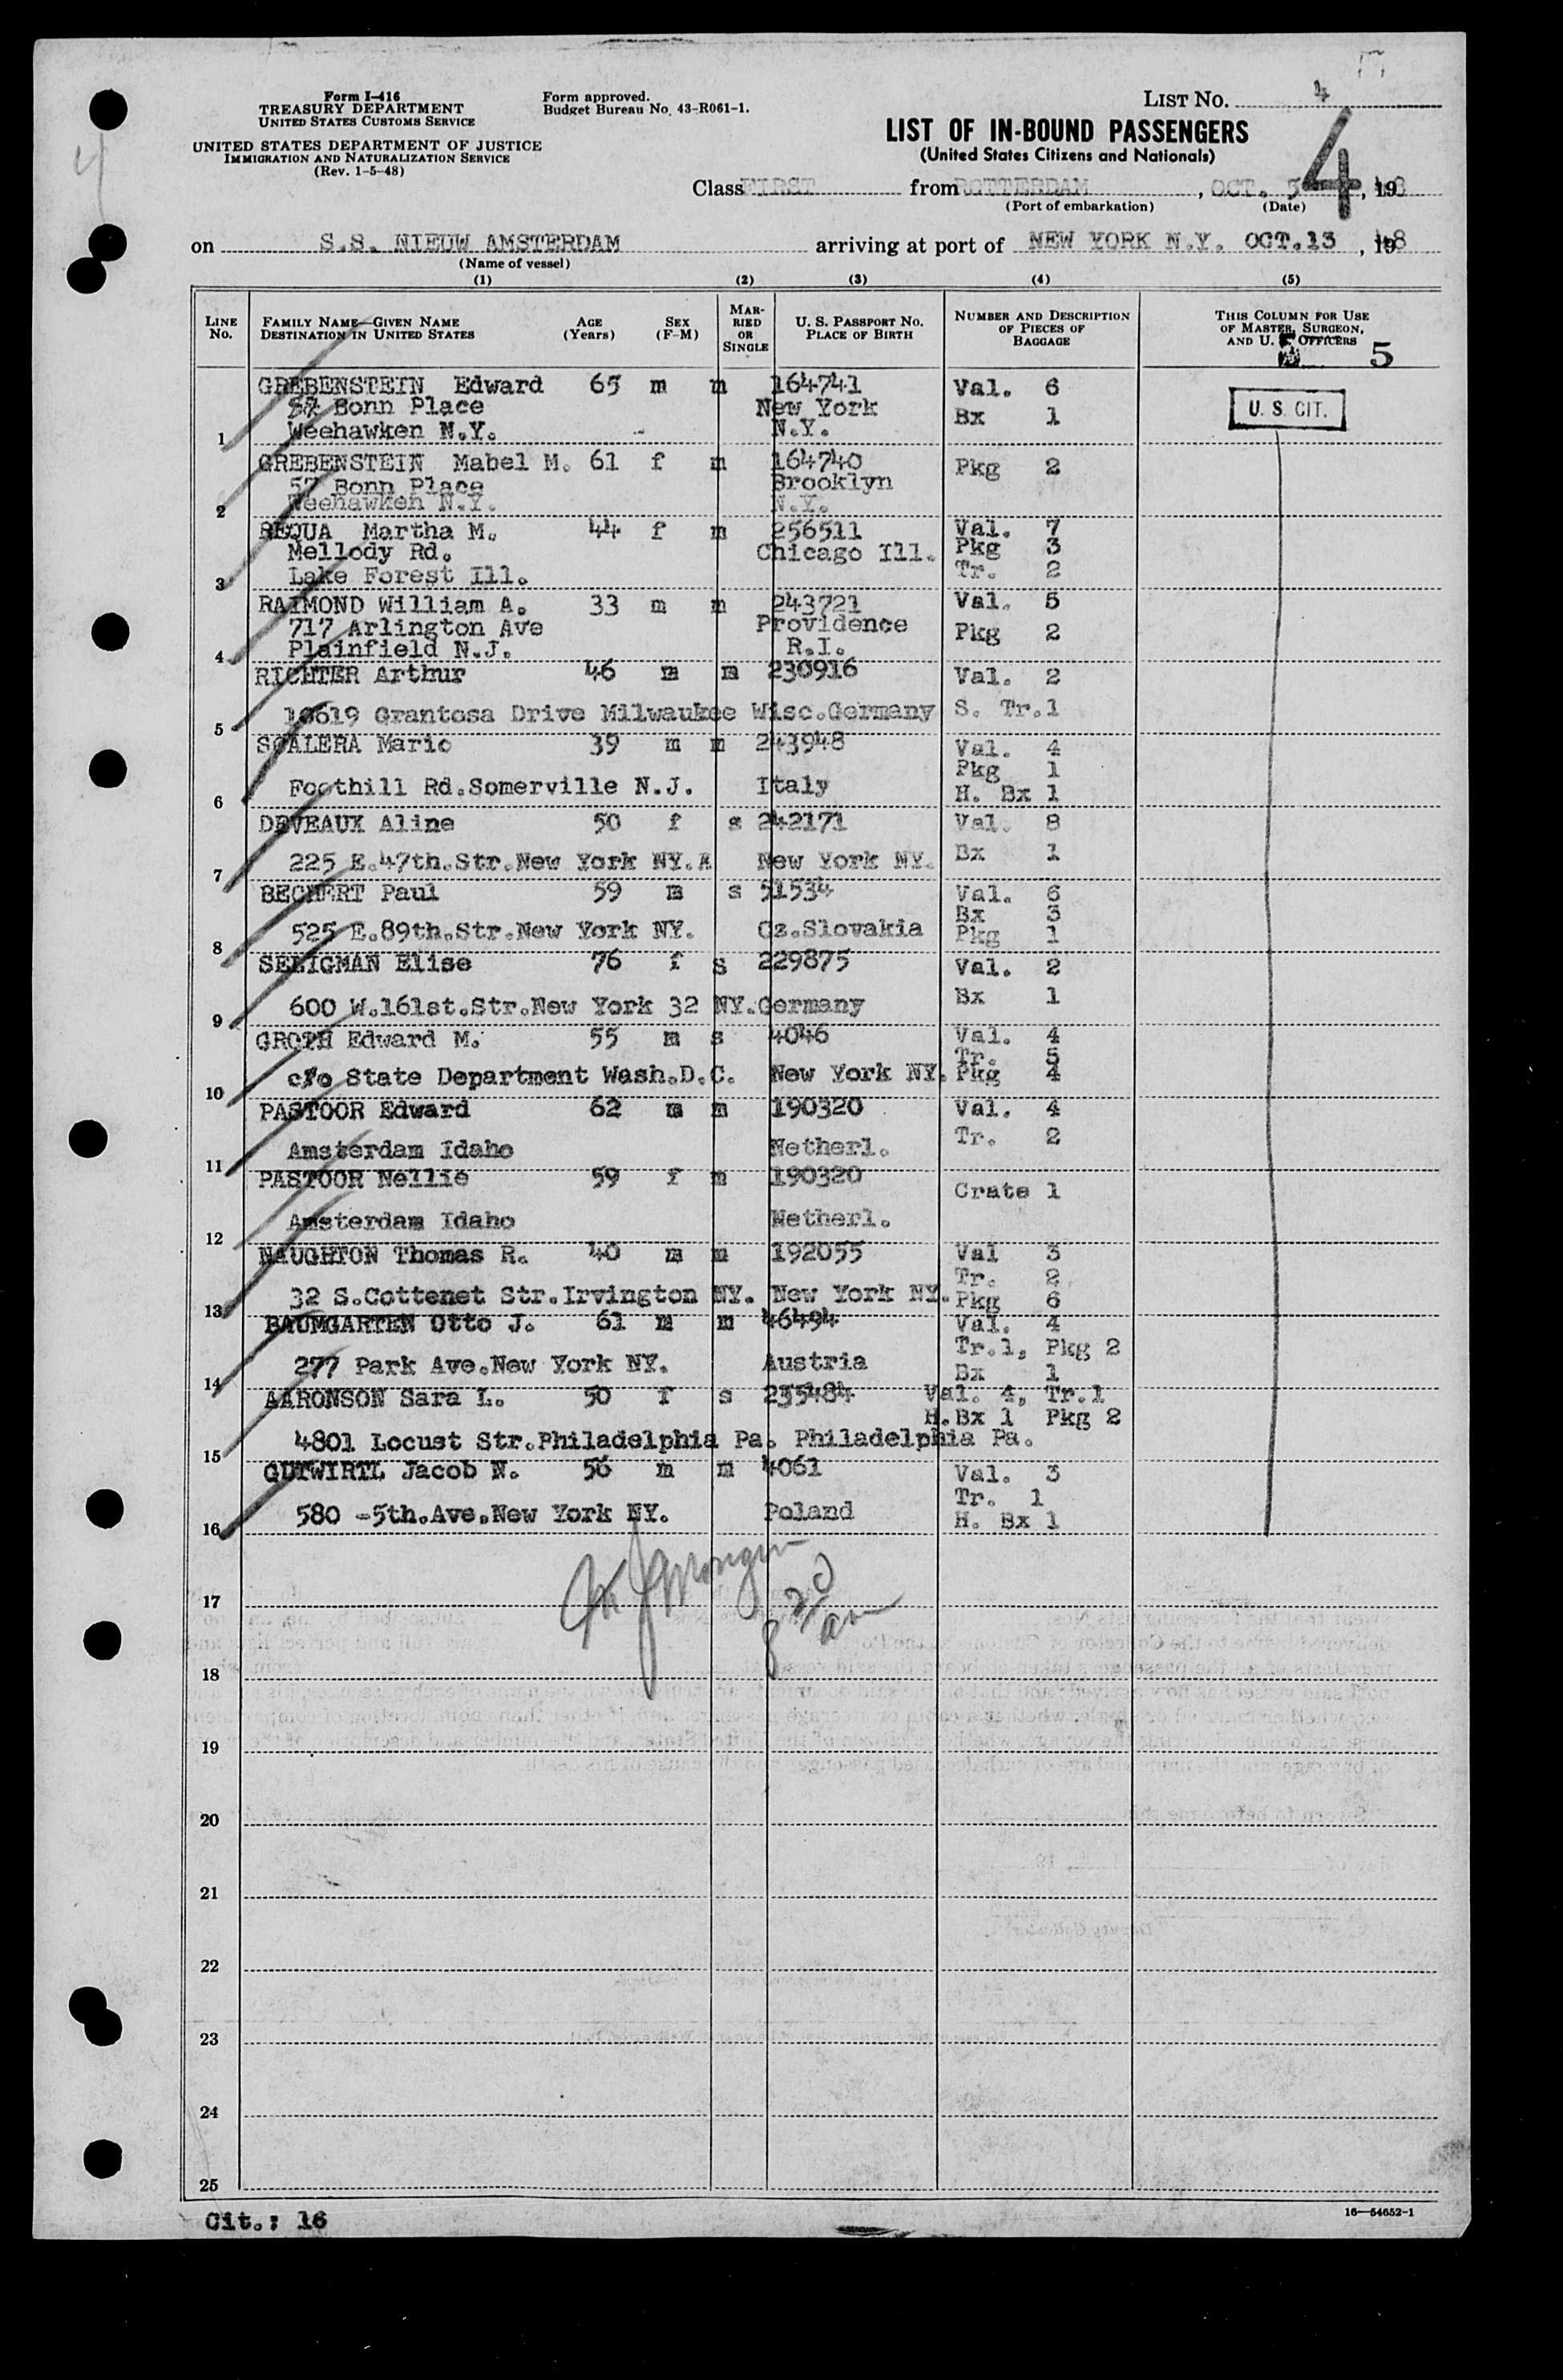 Form I-416
TREASURY DEPARTMENT
UNITED STATES CUSTOMS SERVICE
UNITED STATES DEPARTMENT OF JUSTICE
IMMIGRATION AND NATURALIZATION SERVICE
(Rev. 1-5-48)
Form approved.
Budget Bureau No. 43-R061-1.
LIST No. 4
4
LIST OF IN-BOUND PASSENGERS
(United States Citizens and Nationals)
Class FIRST from ROTTERDAM, OCT. 5, 1948
(Port of embarkation) (Date)
on S.S. NIEUW AMSTERDAM arriving at port of NEW YORK N.Y. OCT.13, 1948
(Name of vessel)
(1) (2) (3) (4) (5)
LINE No. FAMILY NAME—GIVEN NAME DESTINATION IN UNITED STATES AGE (Years) SEX (F-M) MARRIED OR SINGLE U. S. PASSPORT NO. PLACE OF BIRTH NUMBER AND DESCRIPTION OF PIECES OF BAGGAGE THIS COLUMN FOR USE OF MASTER, SURGEON, AND U. S. OFFICERS
5
GREBENSTEIN Edward 65 m m 164741 Val. 6
57 Bonn Place New York Bx 1 U. S. CIT.
1 Weehawken N.Y. N.Y.
GREBENSTEIN Mabel M. 61 f m 164740 Pkg 2
57 Bonn Place Brooklyn
2 Weehawken N.Y. N.Y.
REQUA Martha M. 44 f m 256511 Val. 7
Mellody Rd. Chicago Ill. Pkg 3
3 Lake Forest Ill. Tr. 2
RAIMOND William A. 33 m m 243721 Val. 5
717 Arlington Ave Providence Pkg 2
4 Plainfield N.J. R.I.
RICHTER Arthur 46 m m 230916 Val. 2
5 10619 Grantosa Drive Milwaukee Wisc.Germany S. Tr.1
SCALERA Mario 39 m m 243948 Val. 4
Pkg 1
6 Foothill Rd.Somerville N.J. Italy H. Bx 1
DEVEAUX Aline 50 f s 242171 Val. 8
7 225 E.47th.Str.New York NY.A New York NY. Bx 1
BECHERT Paul 59 m s 51534 Val. 6
Bx 3
8 525 E.89th.Str.New York NY. Cz.Slovakia Pkg 1
SELIGMAN Elise 76 f s 229875 Val. 2
9 600 W.161st.Str.New York 32 NY.Germany Bx 1
GROTH Edward M. 55 m s 4046 Val. 4
Tr. 5
10 c/o State Department Wash.D.C. New York NY. Pkg 4
PASTOOR Edward 62 m m 190320 Val. 4
11 Amsterdam Idaho Netherl. Tr. 2
PASTOOR Nellie 59 f m 190320 Crate 1
12 Amsterdam Idaho Netherl.
NAUGHTON Thomas R. 40 m m 192055 Val 3
Tr. 2
13 32 S.Cottenet Str.Irvington NY. New York NY. Pkg 6
BAUMGARTEN Otto J. 61 m m 46494 Val. 4
Tr.1, Pkg 2
14 277 Park Ave.New York NY. Austria Bx 1
AARONSON Sara L. 50 f s 235484 Val. 4, Tr.1
H.Bx 1 Pkg 2
15 4801 Locust Str.Philadelphia Pa. Philadelphia Pa.
GUTWIRTL Jacob N. 56 m m 4061 Val. 3
Tr. 1
16 580 -5th.Ave.New York NY. Poland H. Bx 1
17
18
19
20
21
22
23
24
25
Cit.: 16
16—54652-1